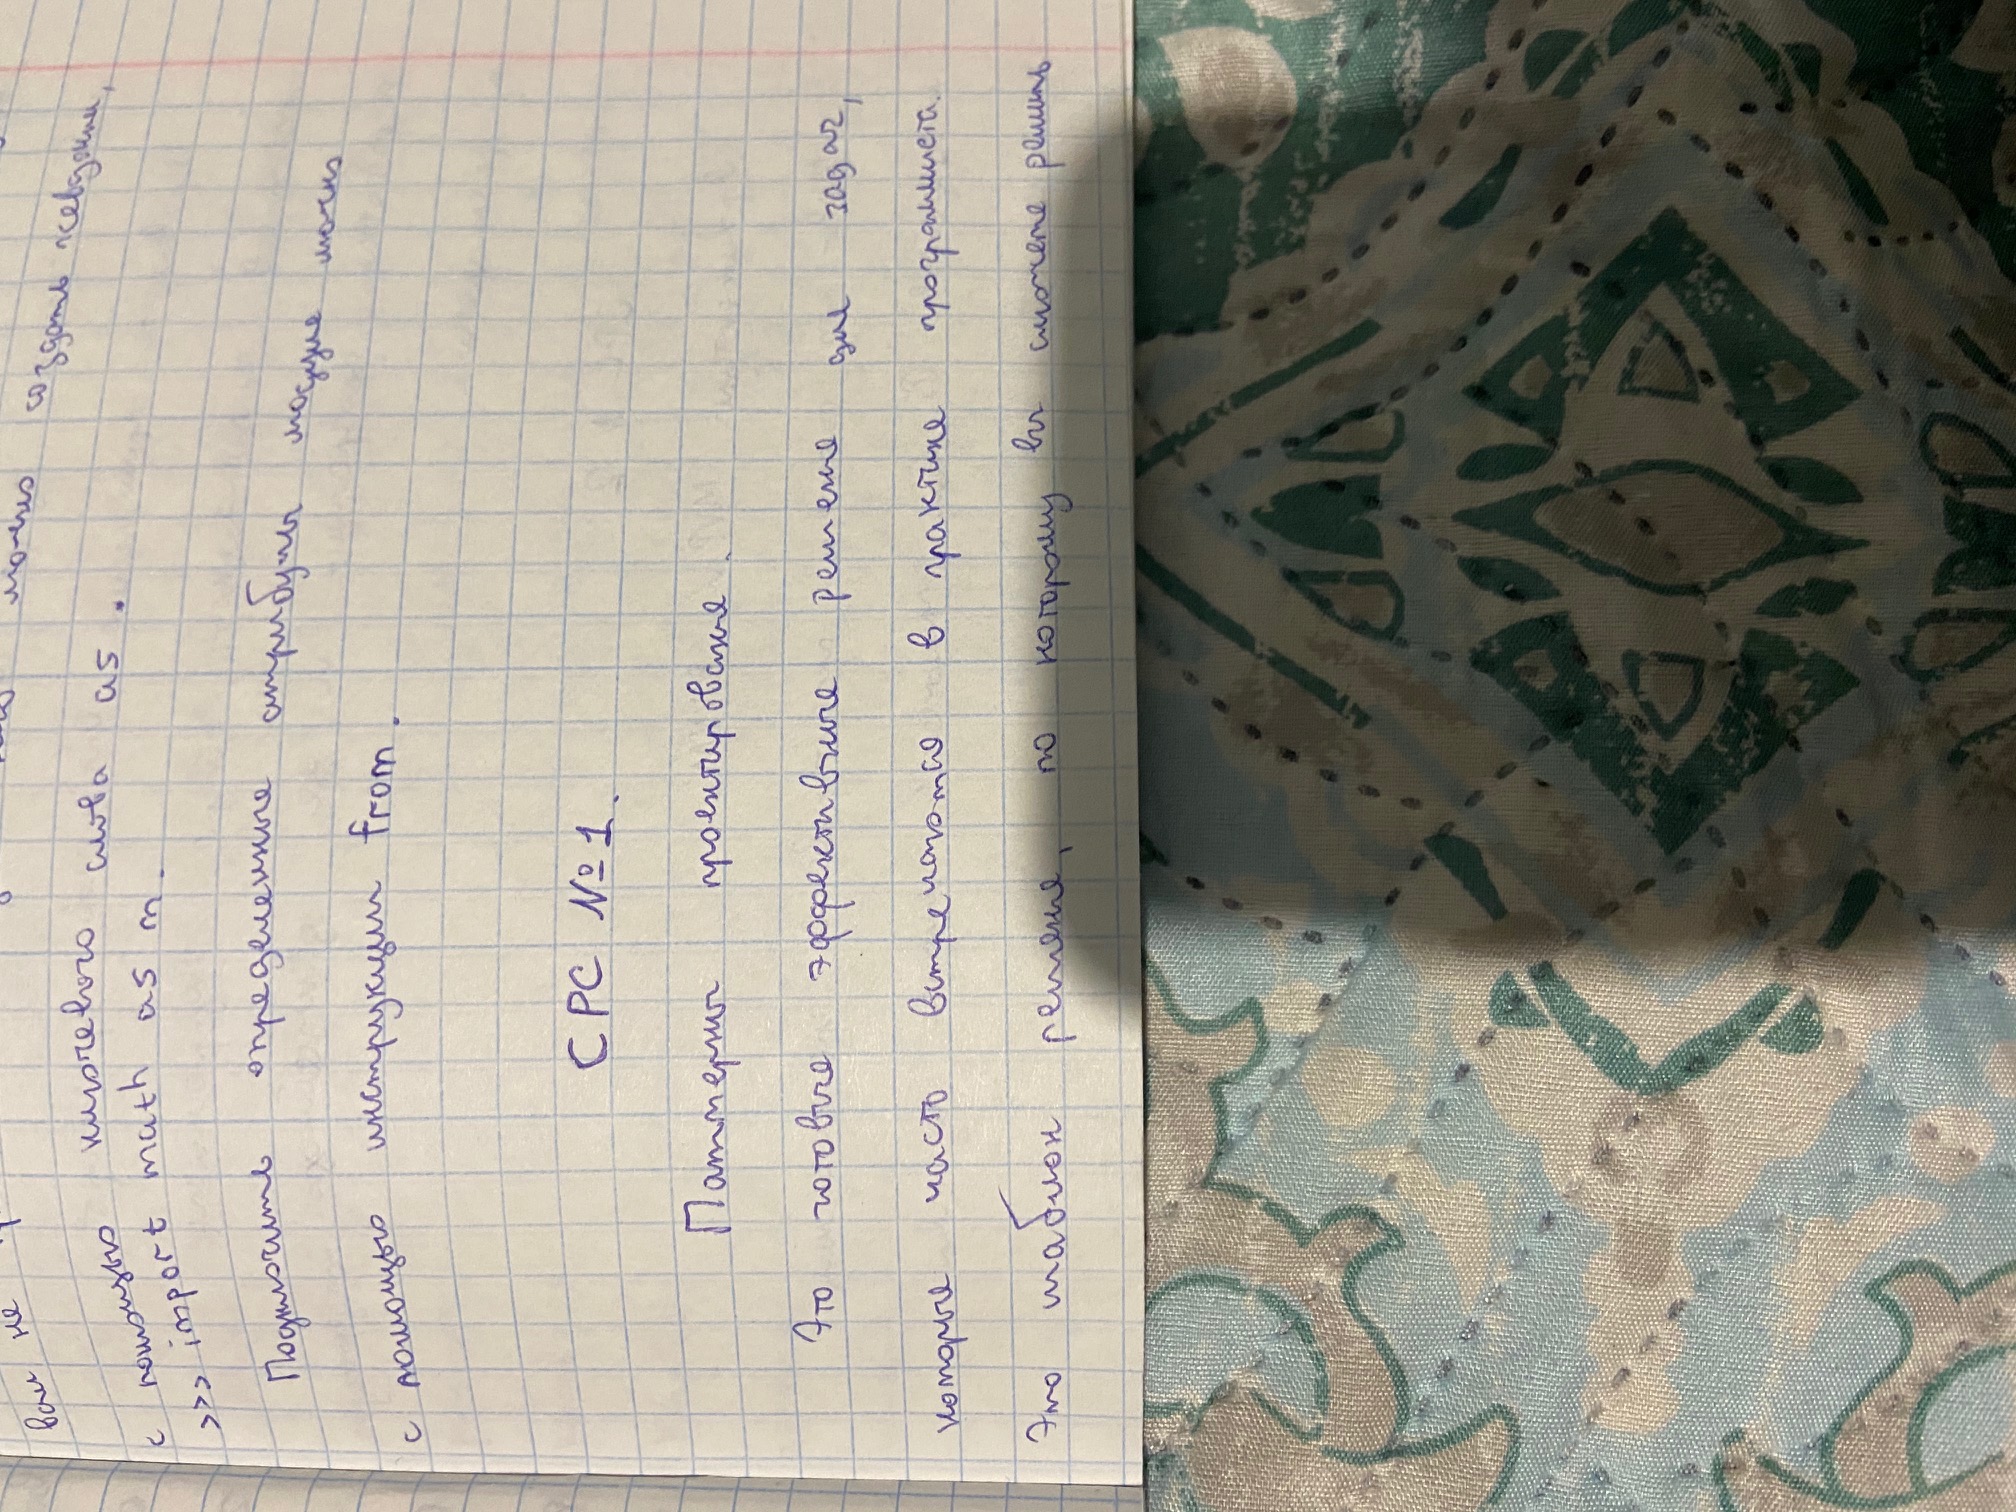 вам не можно создать псевдоним,
с помощью ключевого слова as.
>>> import math as m.
Подключить определенные атрибуты модуля можно
с помощью инструкции from.
СРС №1.
Паттерны проектирования.
Это готовые эффективные решения для задач,
которые часто встречаются в практике программиста.
Это шаблон решения, по которому вы сможете решить